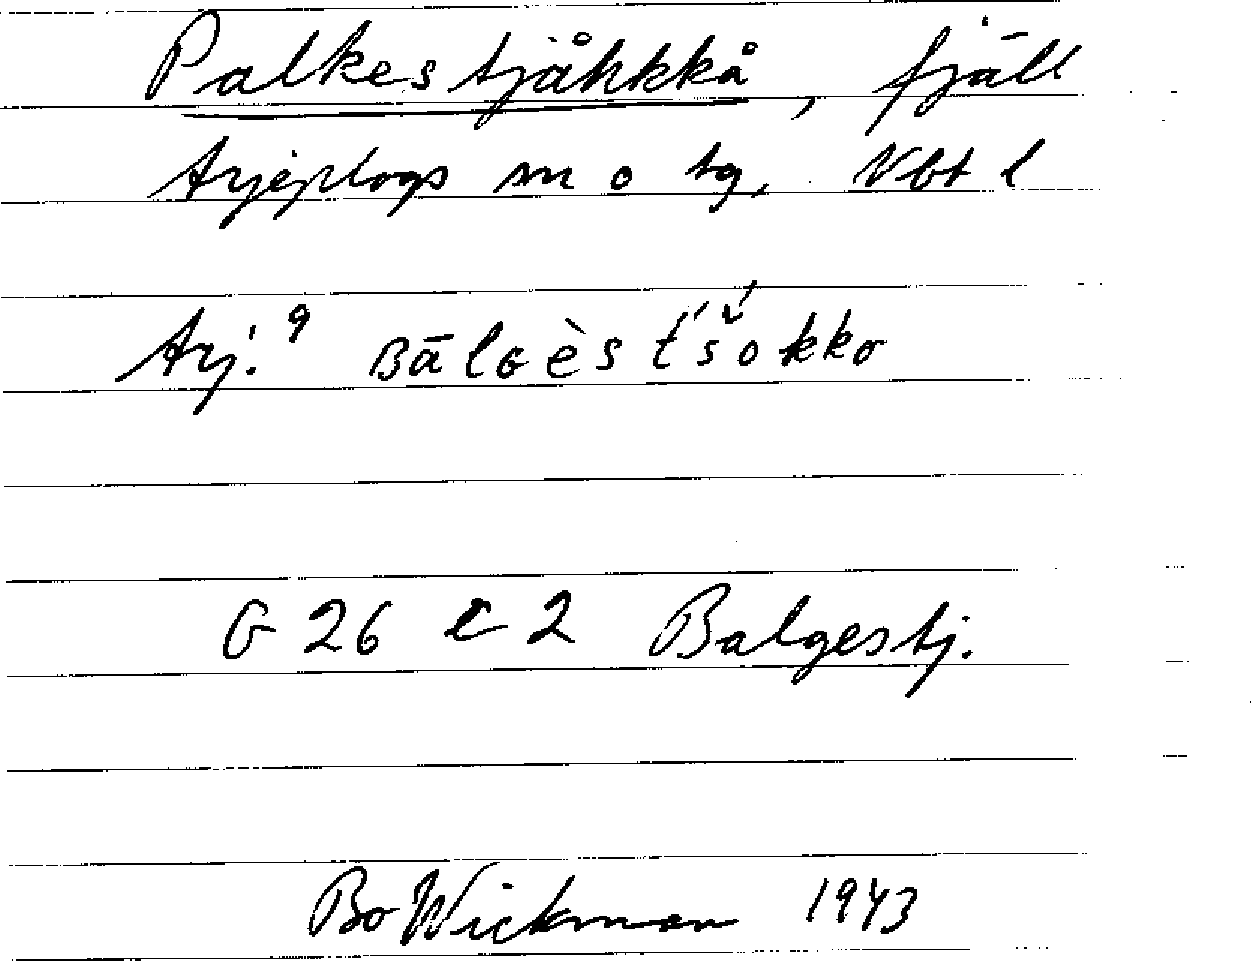 Palkestjåhkkå, fjäll
Arjeplogs sn o tg, Vbt l
Arj.9 BālGès t́'š́okko
G 26 c 2 Balgestj.
Bo Wickman 1943